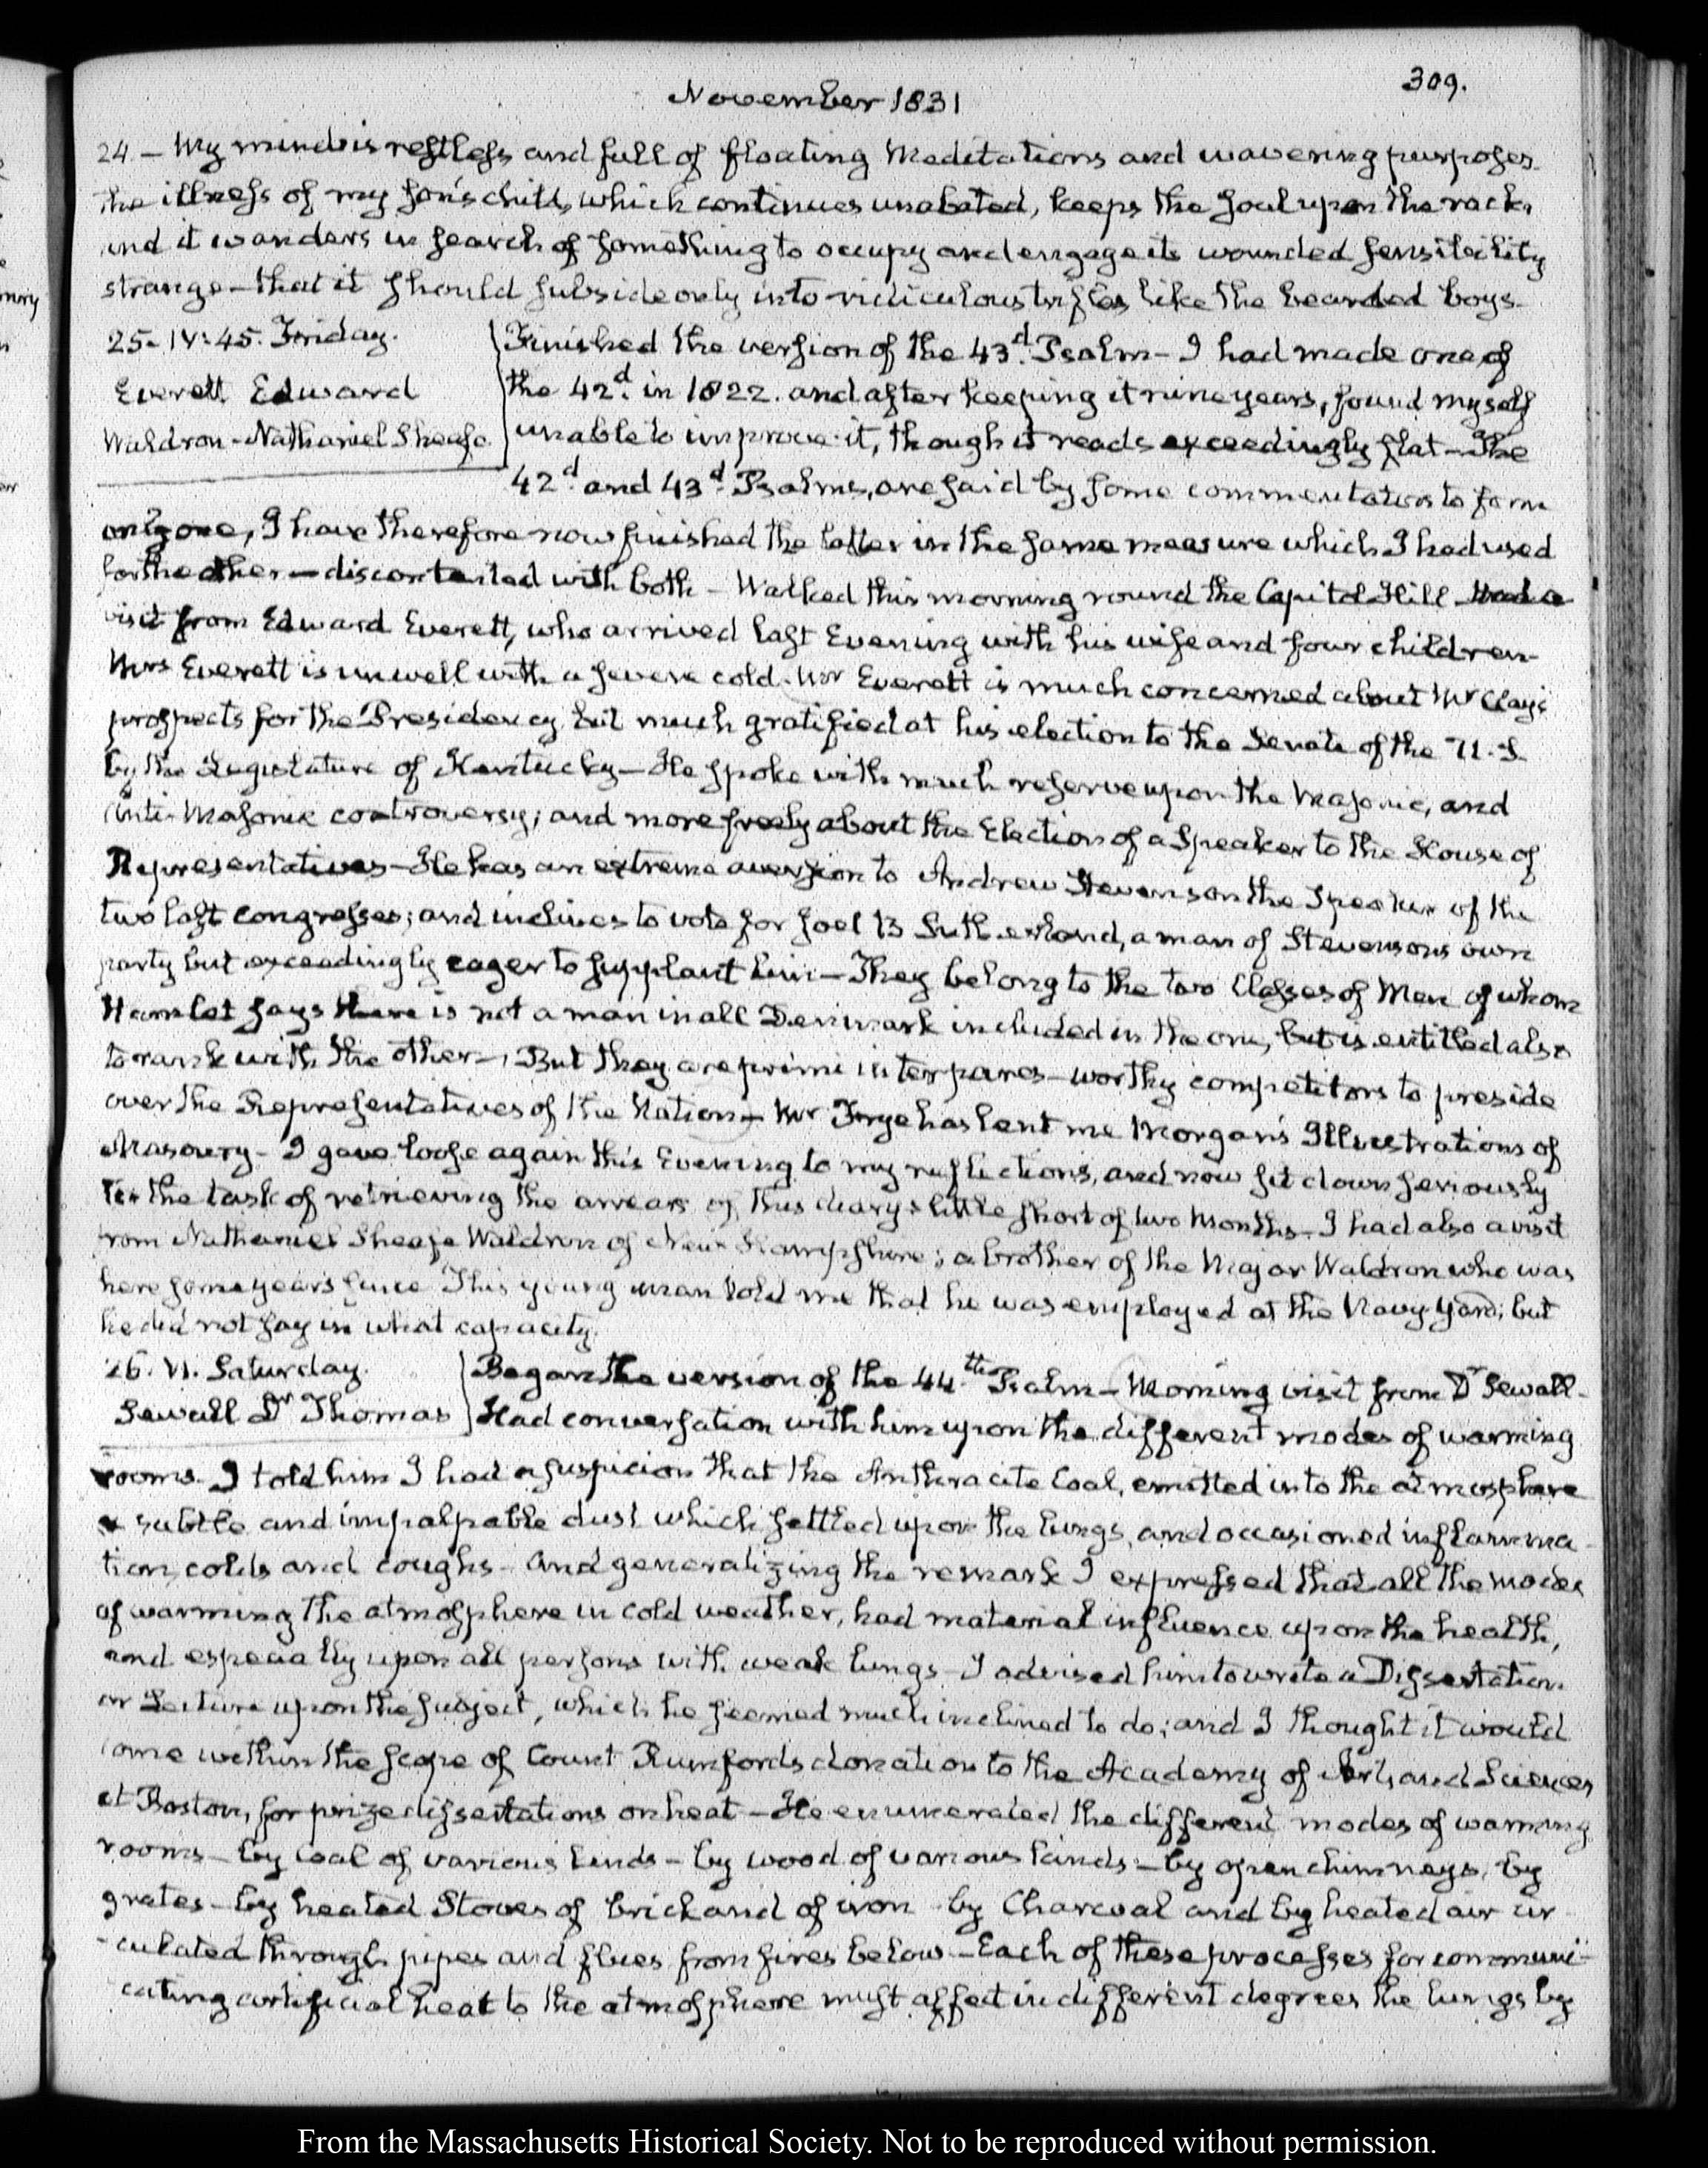 309.
November 1831
24. — My mind is restless and full of floating Meditations and wavering purposes.
the illness of my son's child, which continues unabated, keeps the soul upon the rack,
and it wanders in search of something to occupy and engage its wounded sensibility
strange — that it should subside only into ridiculous trifles like the bearded boys.
25. IV:45. Friday.
Everett Edward
Waldron - Nathaniel Sheafe.
Finished the version of the 43d. Psalm — I had made one of
the 42d. in 1822. and after keeping it nine years, found myself
unable to improve it, though it reads exceedingly flat — The
42d. and 43d. Psalms, are said by some commentators to form
only one, I have therefore now finished the latter in the same measure which I had used
for the other — discontented with both — Walked this morning round the Capitol Hill — Had a
visit from Edward Everett, who arrived last Evening with his wife and four children
Mrs Everett is unwell with a severe cold. Mr Everett is much concerned about Mr Clay's
prospects for the Presidency but much gratified at his election to the Senate of the U.S.
by the Legislature of Kentucky — He spoke with much reserve upon the Masonic, and
Anti-Masonic controversy; and more freely about the Election of a Speaker to the House of
Representatives — He has an extreme aversion to Andrew Stevenson the Speaker of the
two last Congresses; and inclines to vote for Joel B Sutherland, a man of Stevensons own
party but exceedingly eager to supplant him — They belong to the two Classes of Men of whom
Hamlet says there is not a man in all Denmark included in the one, but is entitled also
to rank with the other —, But they are primi inter pares — worthy competitors to preside
over the Representatives of the Nation — Mr Frye has lent me Morgan's Illustrations of
Masonry — I gave loose again this Evening to my reflections, and now sit down seriously
to the task of retrieving the arrears of this diary; little short of two Months. I had also a visit
from Nathaniel Sheafe Waldron of New Hampshire; a brother of the Major Waldron who was
here some years since This young man told me that he was employed at the Navy Yard; but
he did not say in what capacity.
26. VI. Saturday.
Sewall Dr Thomas
Began the version of the 44th Psalm — Morning visit from Dr Sewall.
Had conversation with him upon the different modes of warming
rooms. I told him I had a suspicion that the Anthracite Coal, emitted into the atmosphere
a subtle and impalpable dust which settled upon the lungs, and occasioned inflamma-
tion, colds and coughs — And generalizing the remark I expressed that all the modes
of warming the atmosphere in cold weather, had material influence upon the health,
and especially upon all persons with weak lungs — I advised him to write a Dissertation
or Lecture upon the subject, which he seemed much inclined to do; and I thought it would
come within the scope of Count Rumfords donation to the Academy of Arts and Sciences
at Boston, for prize dissertations on heat — He enumerated the different modes of warming
rooms — by Coal of various kinds — by wood of various kinds — by open chimneys, by
grates — by heated Stoves of brick and of iron by Charcoal and by heated air cir-
-culated through pipes and flues from fires below — Each of these processes for communi-
cating artificial heat to the atmosphere must affect in different degrees the lungs by
From the Massachusetts Historical Society. Not to be reproduced without permission.